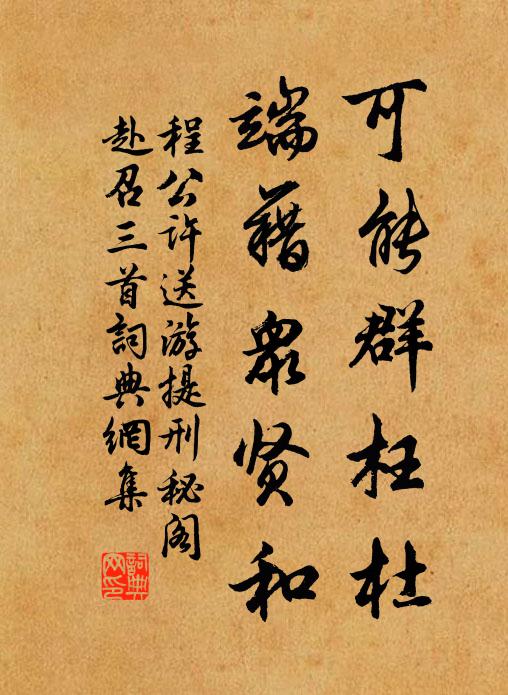 可能群枉杜
端藉眾贤和
程公许送游提刑秘阁
赴召三首詞典網集
詞典網印